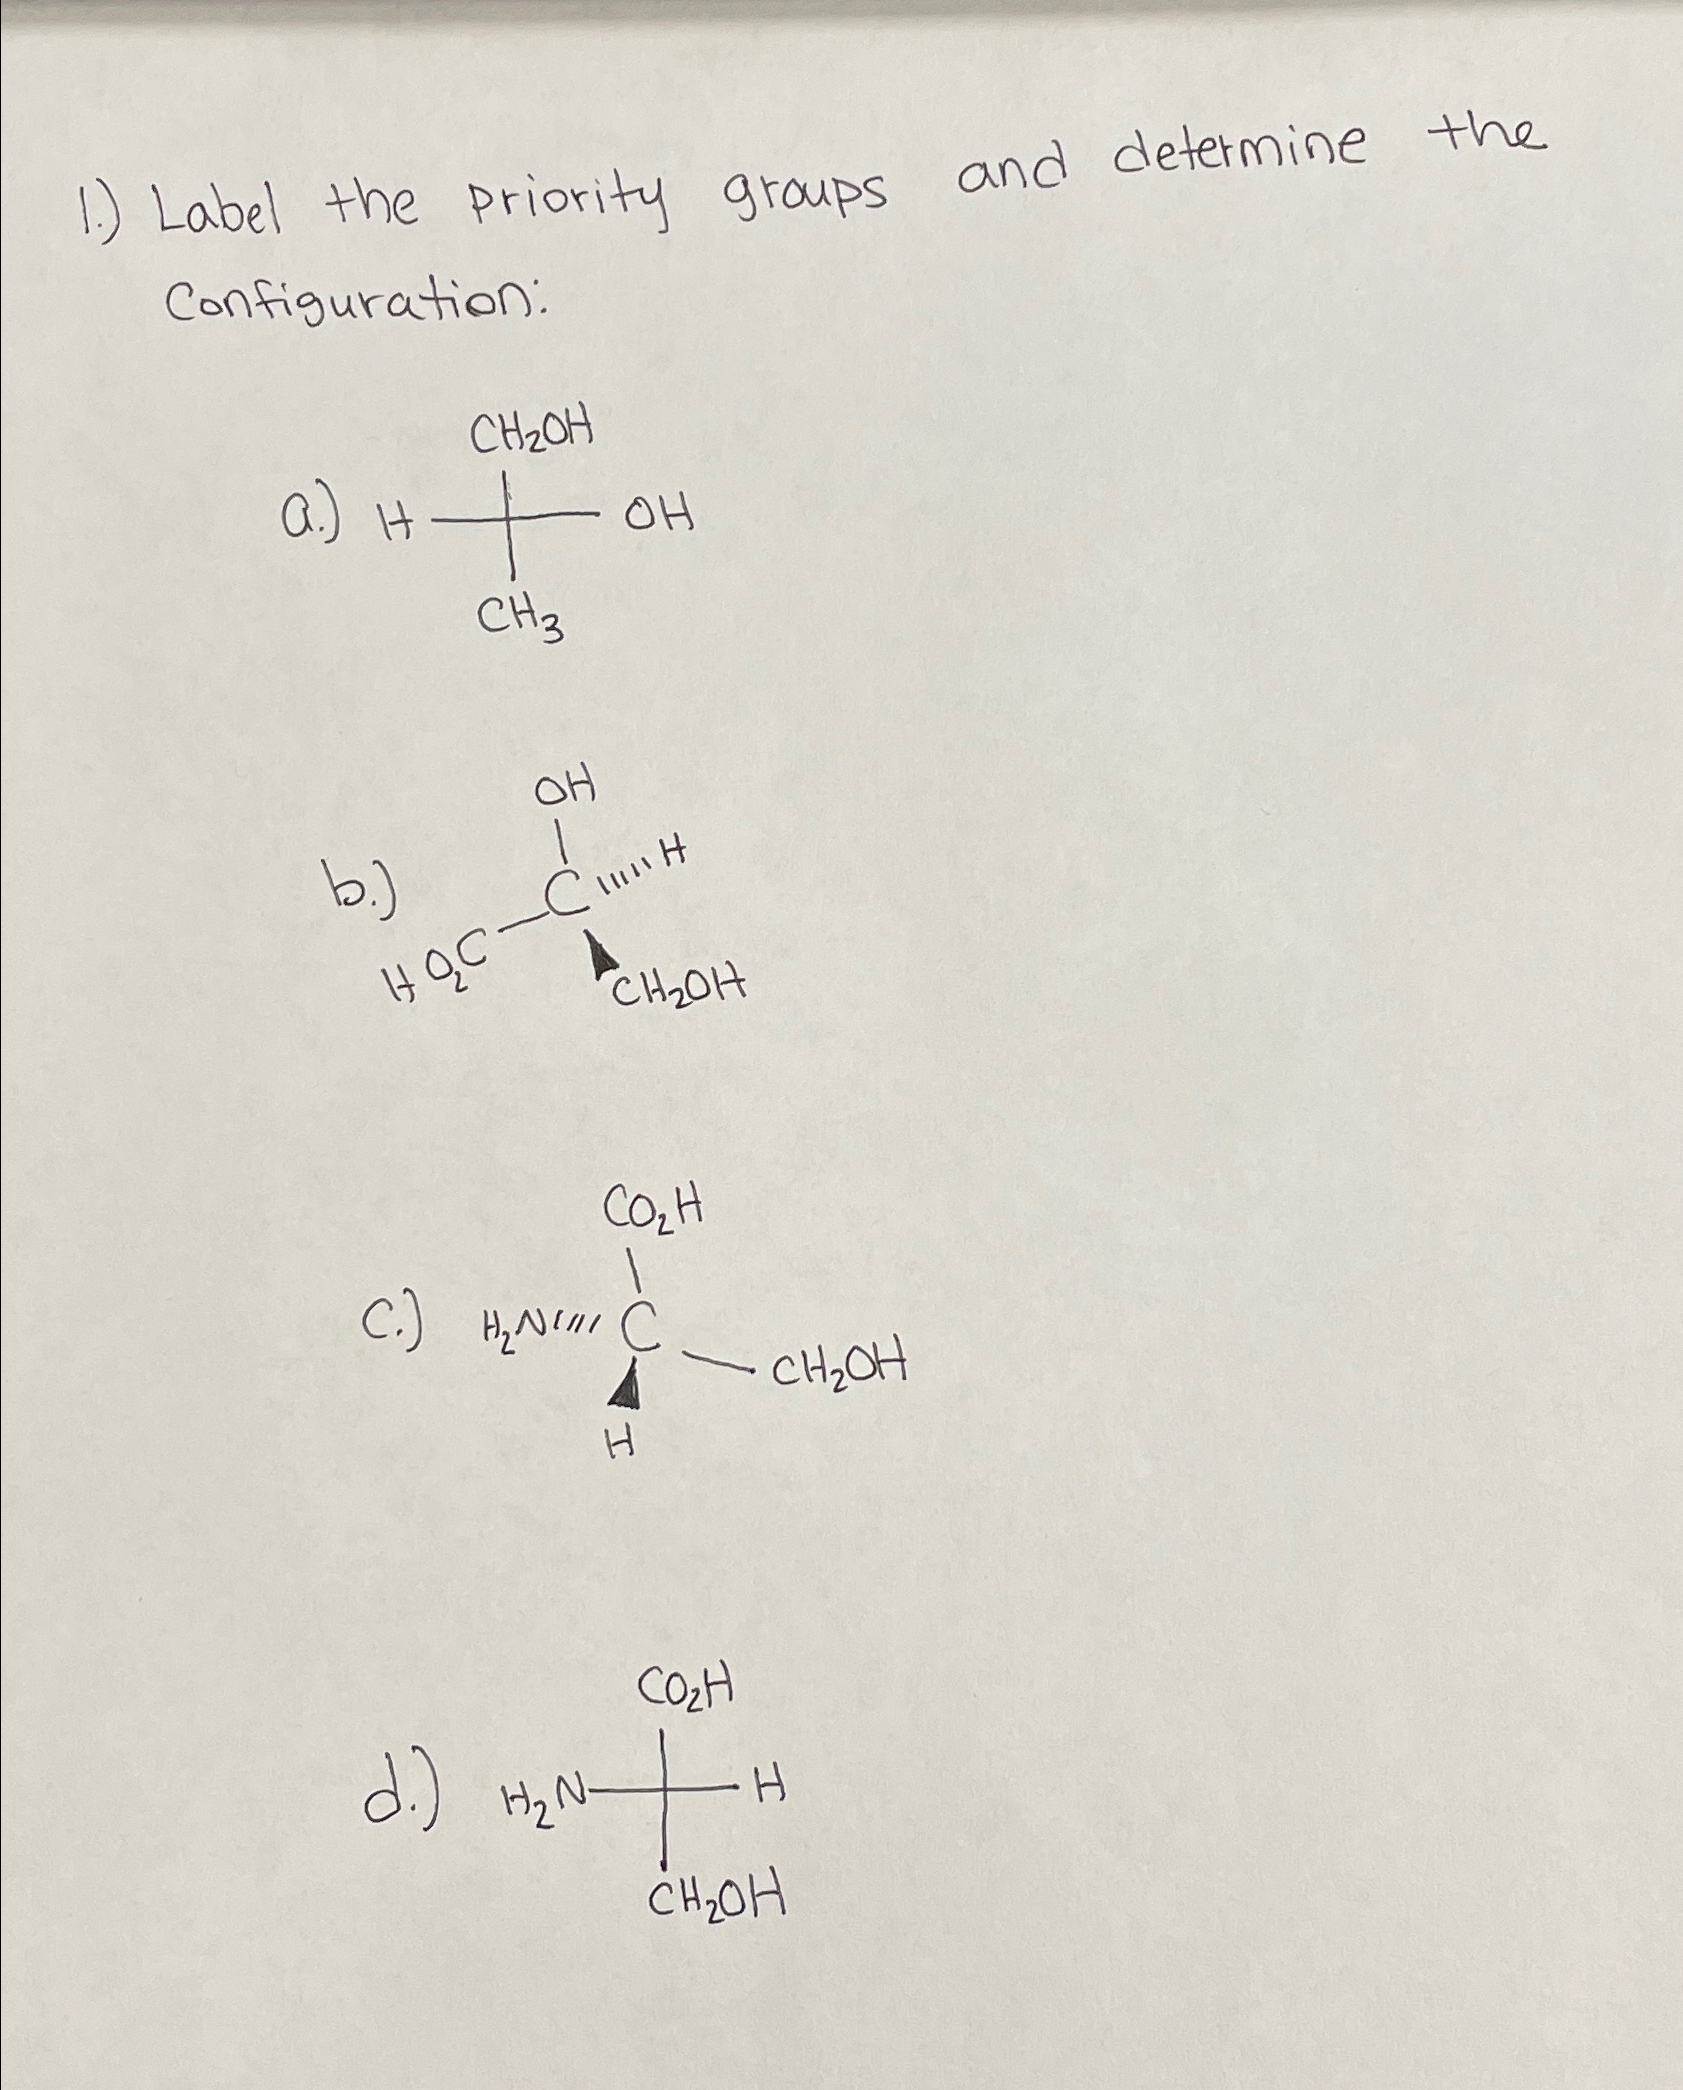 1.) Label the priority groups and determine the
Configuration:
CH₂OH
a.) H OH
CH₃
OH
b.) C H
HO₂C CH₂OH
CO₂H
c.) H₂N C CH₂OH
H
CO₂H
d.) H₂N H
CH₂OH